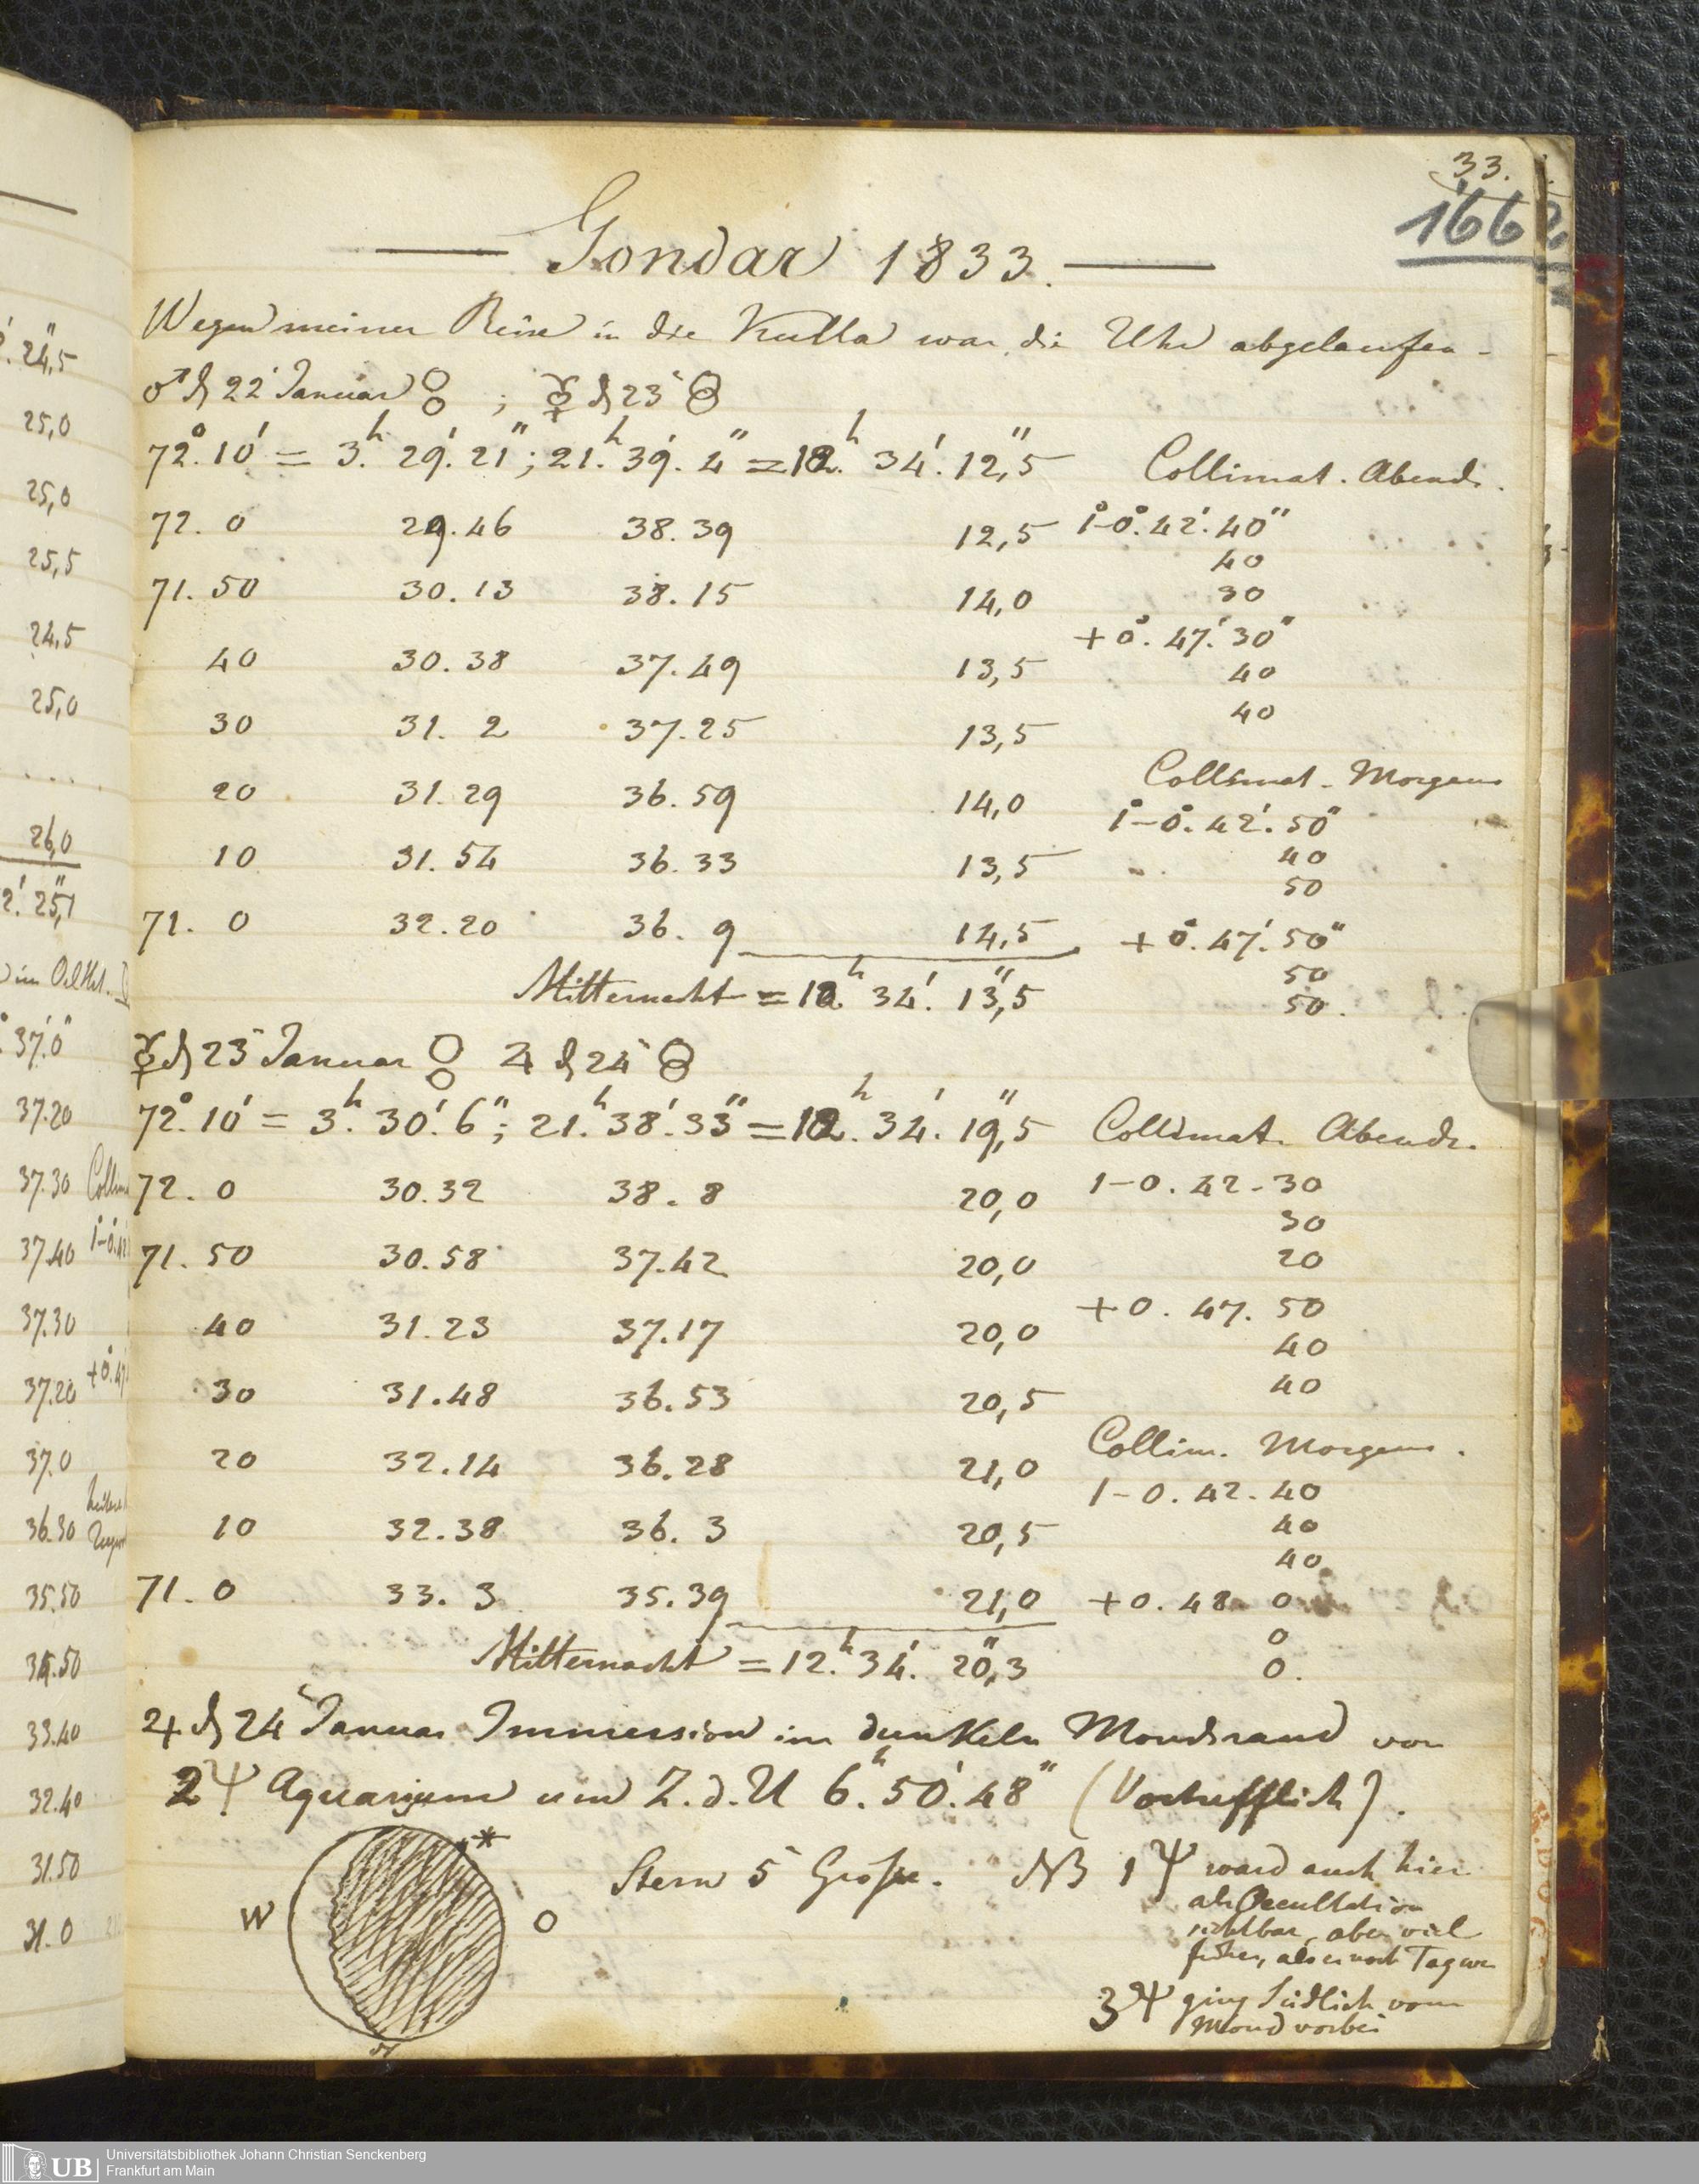 33.
1662
Gondar 1833.
Wegen meiner Reise in die Kulla war die Uhr abgelaufen -
♂ d 22 Januar ; ☿ d 23
72° 10' = 3.h 29'. 21"; 21.h 39'. 4" = 12.h 34'. 12,"5 Collimat. Abends.
72. 0 29.46 38.39 12,5 1°-0°.42'.40"
40
71. 50 30.13 38.15 14,0 30
+0°.47'.30"
40 30.38 37.49 13,5 40
40
30 31. 2 37.25 13,5
Collimat. Morgens
20 31.29 36.59 14,0 1°-0°.42'.50"
40
10 31.54 36.33 13,5 50
71. 0 32.20 36. 9 14,5 +0°.47'.50"
50
Mitternacht = 12.h 34'. 13,"5 50.
☿ d 23 Januar ♃ d 24
72°. 10' = 3.h 30'. 6"; 21.h 38'. 33" = 12.h 34'. 19,"5 Collimat. Abends.
72. 0 30.32 38. 8 20,0 1-0.42.30
30
71. 50 30.58 37.42 20,0 20
+0. 47. 50
40 31.23 37.17 20,0 40
30 31.48 36.53 20,5 40
Collim. Morgens.
20 32.14 36.28 21,0 1-0.42.40
10 32.38 36. 3 20,5 40
40
71. 0 33. 3 35.39 21,0 +0.48. 0
0
Mitternacht = 12.h 34'. 20,"3 0.
♃ d 24 Januar Immersion im dunkeln Mondrand von
2Ψ Aquarium um Z.d.U 6.h 50'. 48" (Vortrefflich).
*
W O
Stern 5 Grösse. NB 1Ψ ward auch hier
als Occultation
sichtbar, aber viel
früher, als es noch Tag war
3Ψ ging südlich vom
Mond vorbei
24,5
25,0
25,0
25,5
24,5
25,0
26,0
2'. 25,"1
37'.0"
37.20
37.30
37.40
37.30
37.20
37.0
36.30
35.50
34.50
33.40
32.40
31.50
31.0
UB
Universitätsbibliothek Johann Christian Senckenberg
Frankfurt am Main